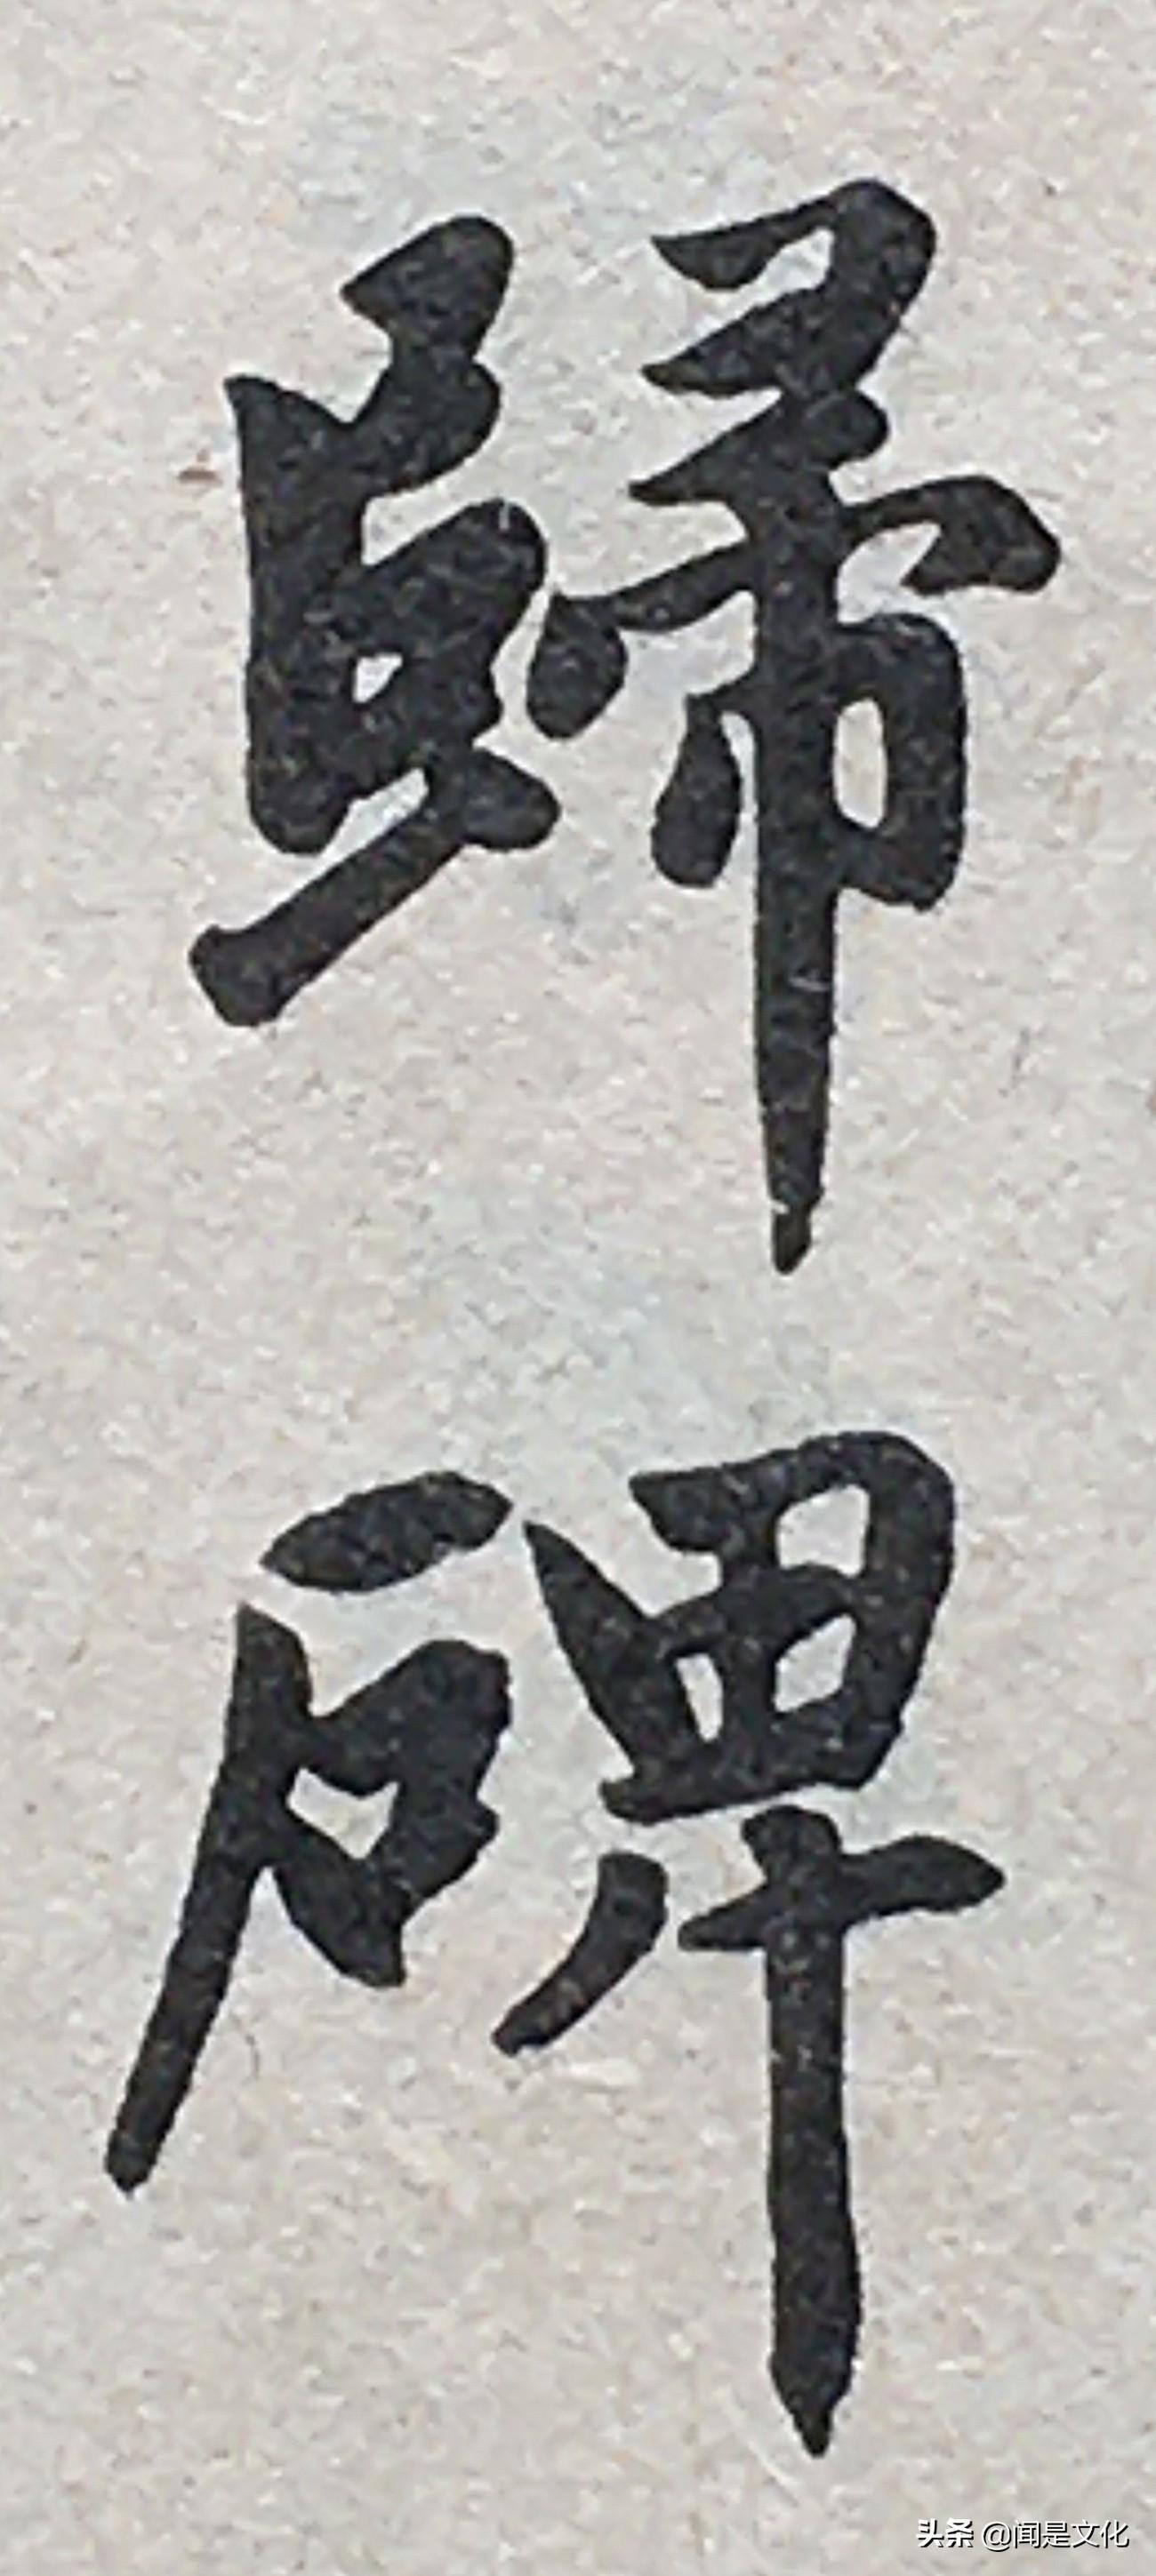 歸
碑
头条 @闻是文化